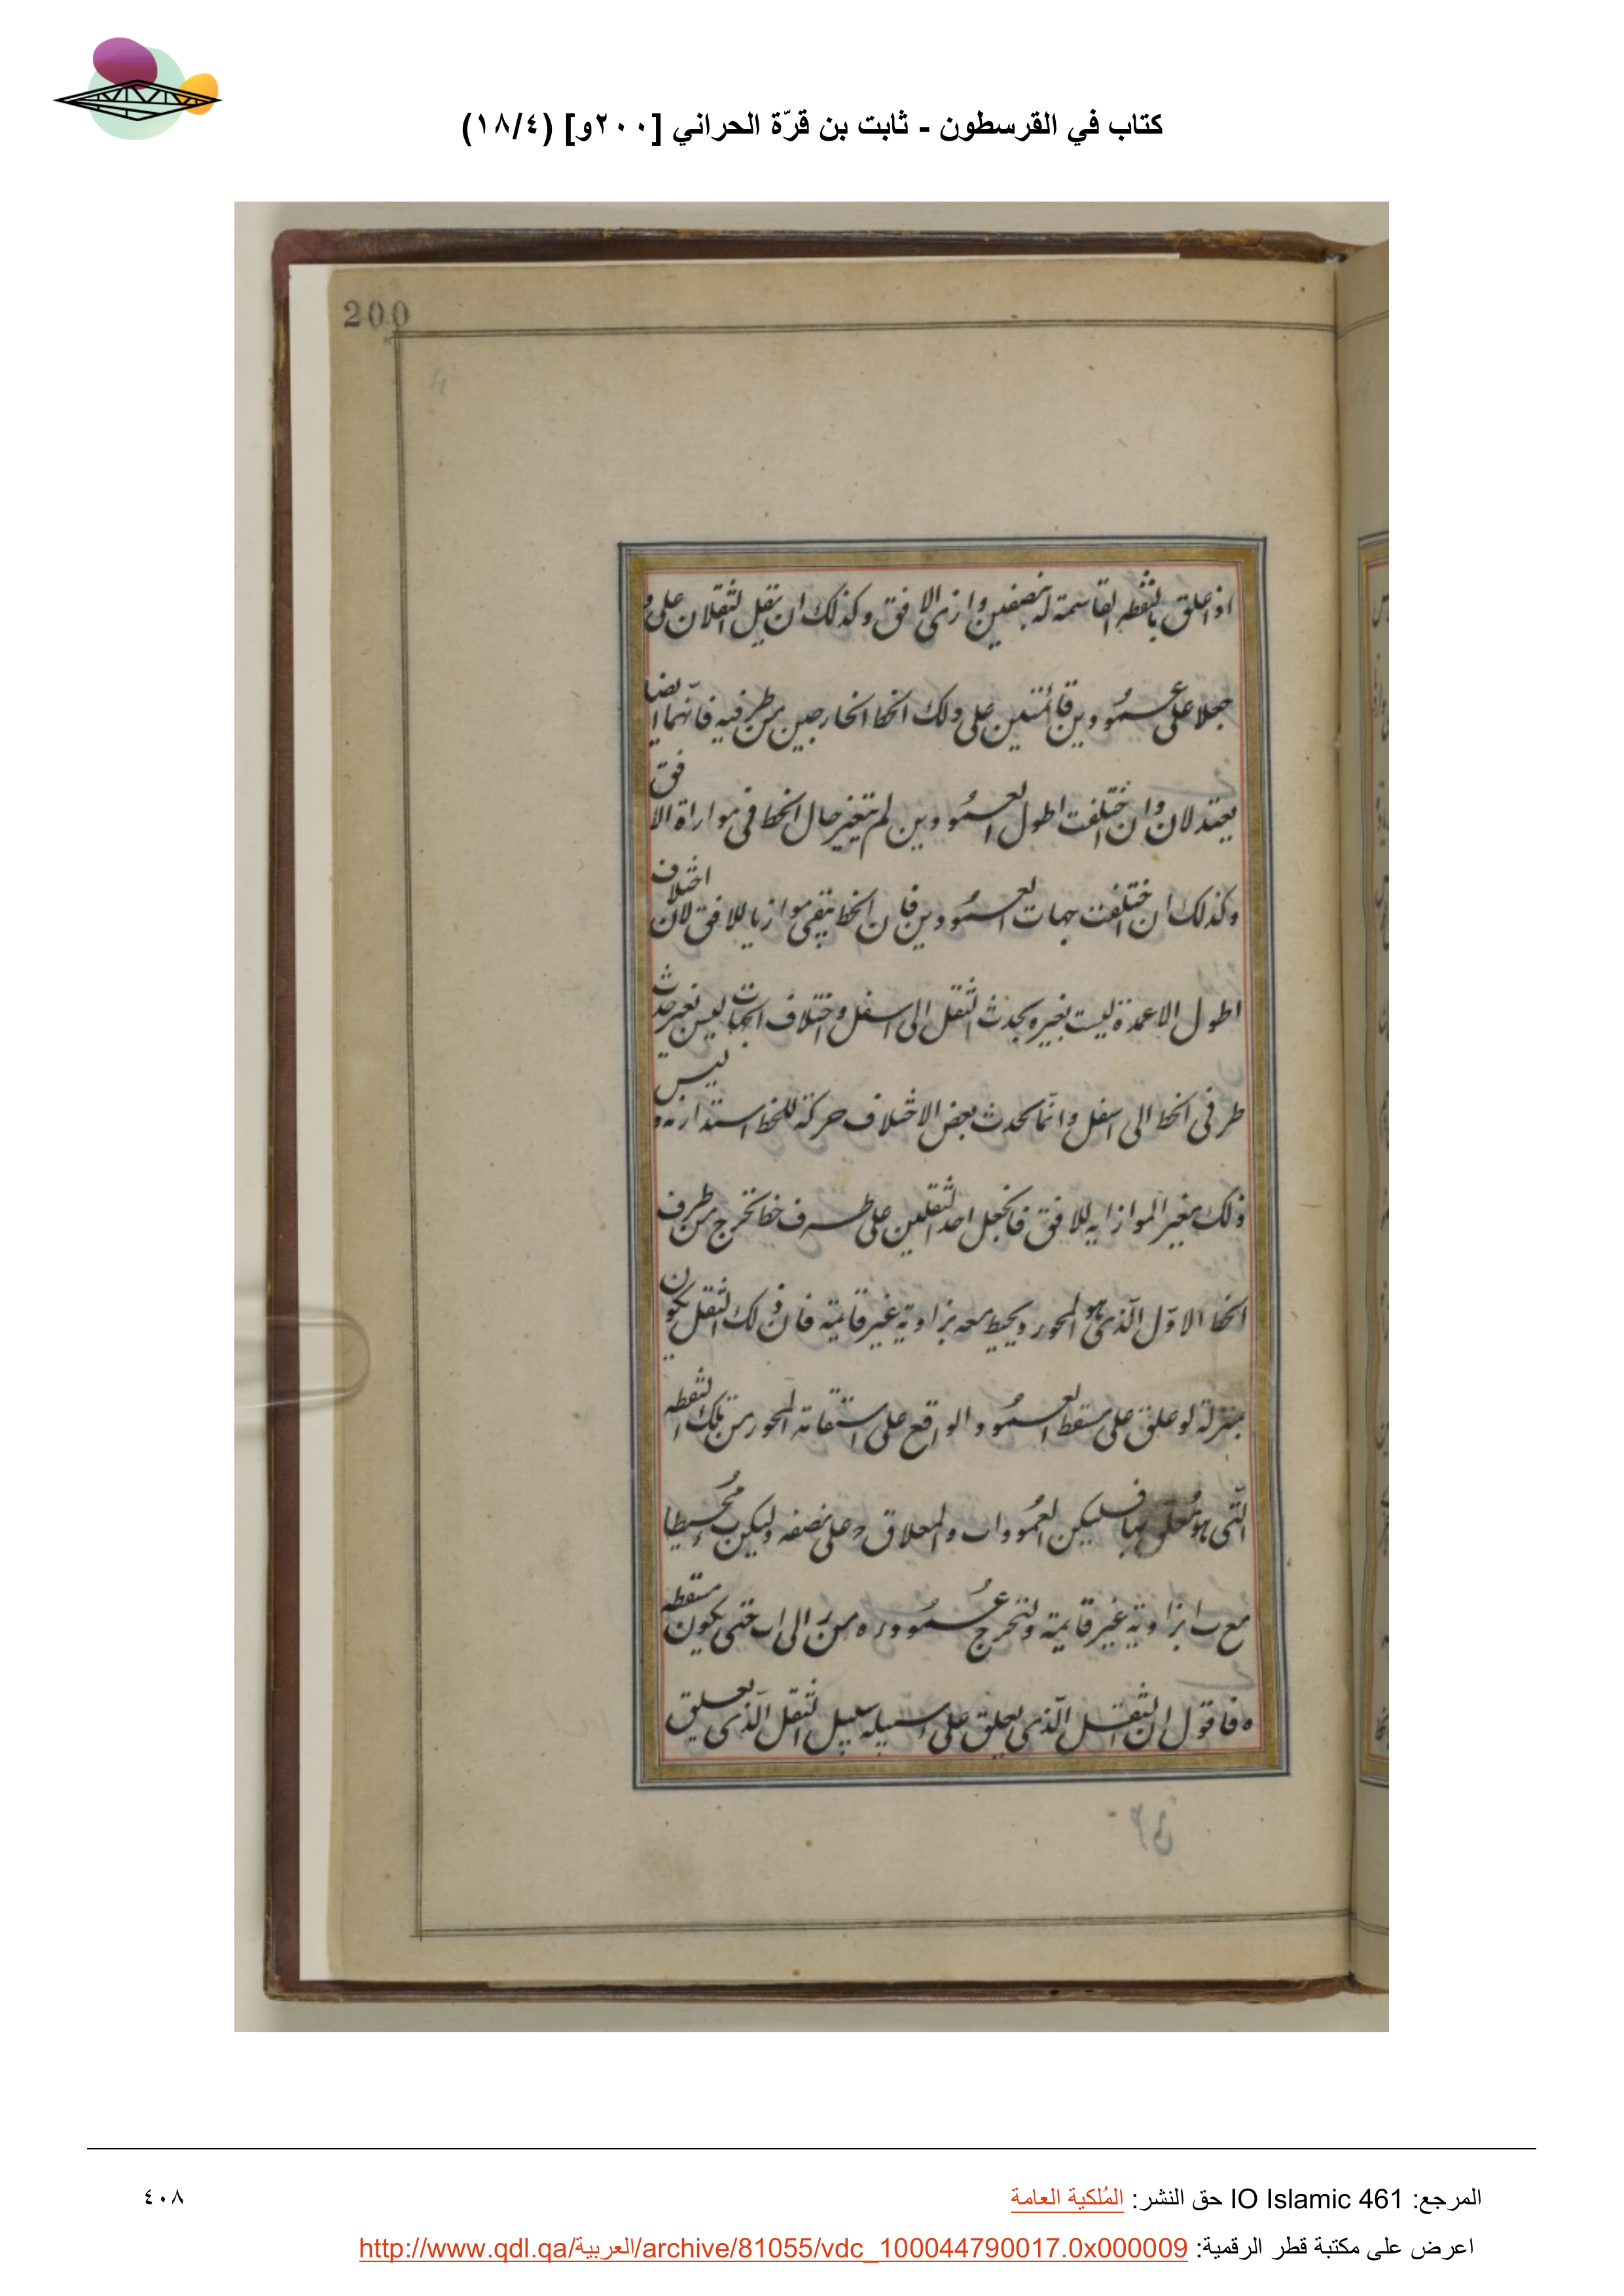 كتاب في القرسطون - ثابت بن قرّة الحراني [٢٠٠و] (١٨/٤)
200
اذا علق بالنقطه القاسمة له بنصفين وازى الافق وكذلك ان نقل الثقلان على و
جعلا على عمودين قائمتين على ذلك الخط الخارجين من طرفيه فانهما ايضا
يعتدلان وان اختلفت اطول العمودين لم تتغير حال الخط فى موازاة الافق
وكذلك ان اختلفت جهات العمودين فان الخط يبقى موازيا للافق لان اختلاف
اطول الاعمدة ليست بغيره يحدث الثقل الى اسفل واختلاف الجهات ليس تغير حدث
طرفى الخط الى اسفل وانّما يحدث بعض الاختلاف حركة للخط استدارته وليس
ذلك بمغير الموازايه للافق فانجعل احد الثقلين على طرف خط تخرج من طرف
الخط الاوّل الّذى هو المحور ويحيط معه بزاوية غير قايمة فان ذلك الثقل يكون
بمنزلة لو علق على مسقط العمود الواقع على استقامة المحور من تلك النقطه
الّتى هو مُعلق بها فليكن العمود اب والمعلاق ح على نصفه وليكن مُحيطا
مع ب ا بزاوية غير قايمة ولنخرج عمود ره من ر الى اب حتى يكون مسقطه
ه فاقول ان الثقل الّذى يعلق على سبيله سبيل الثقل الّذى يعلق
المرجع: IO Islamic 461 حق النشر: المُلكية العامة
٤٠٨
اعرض على مكتبة قطر الرقمية: http://www.qdl.qa/العربية/archive/81055/vdc_100044790017.0x000009